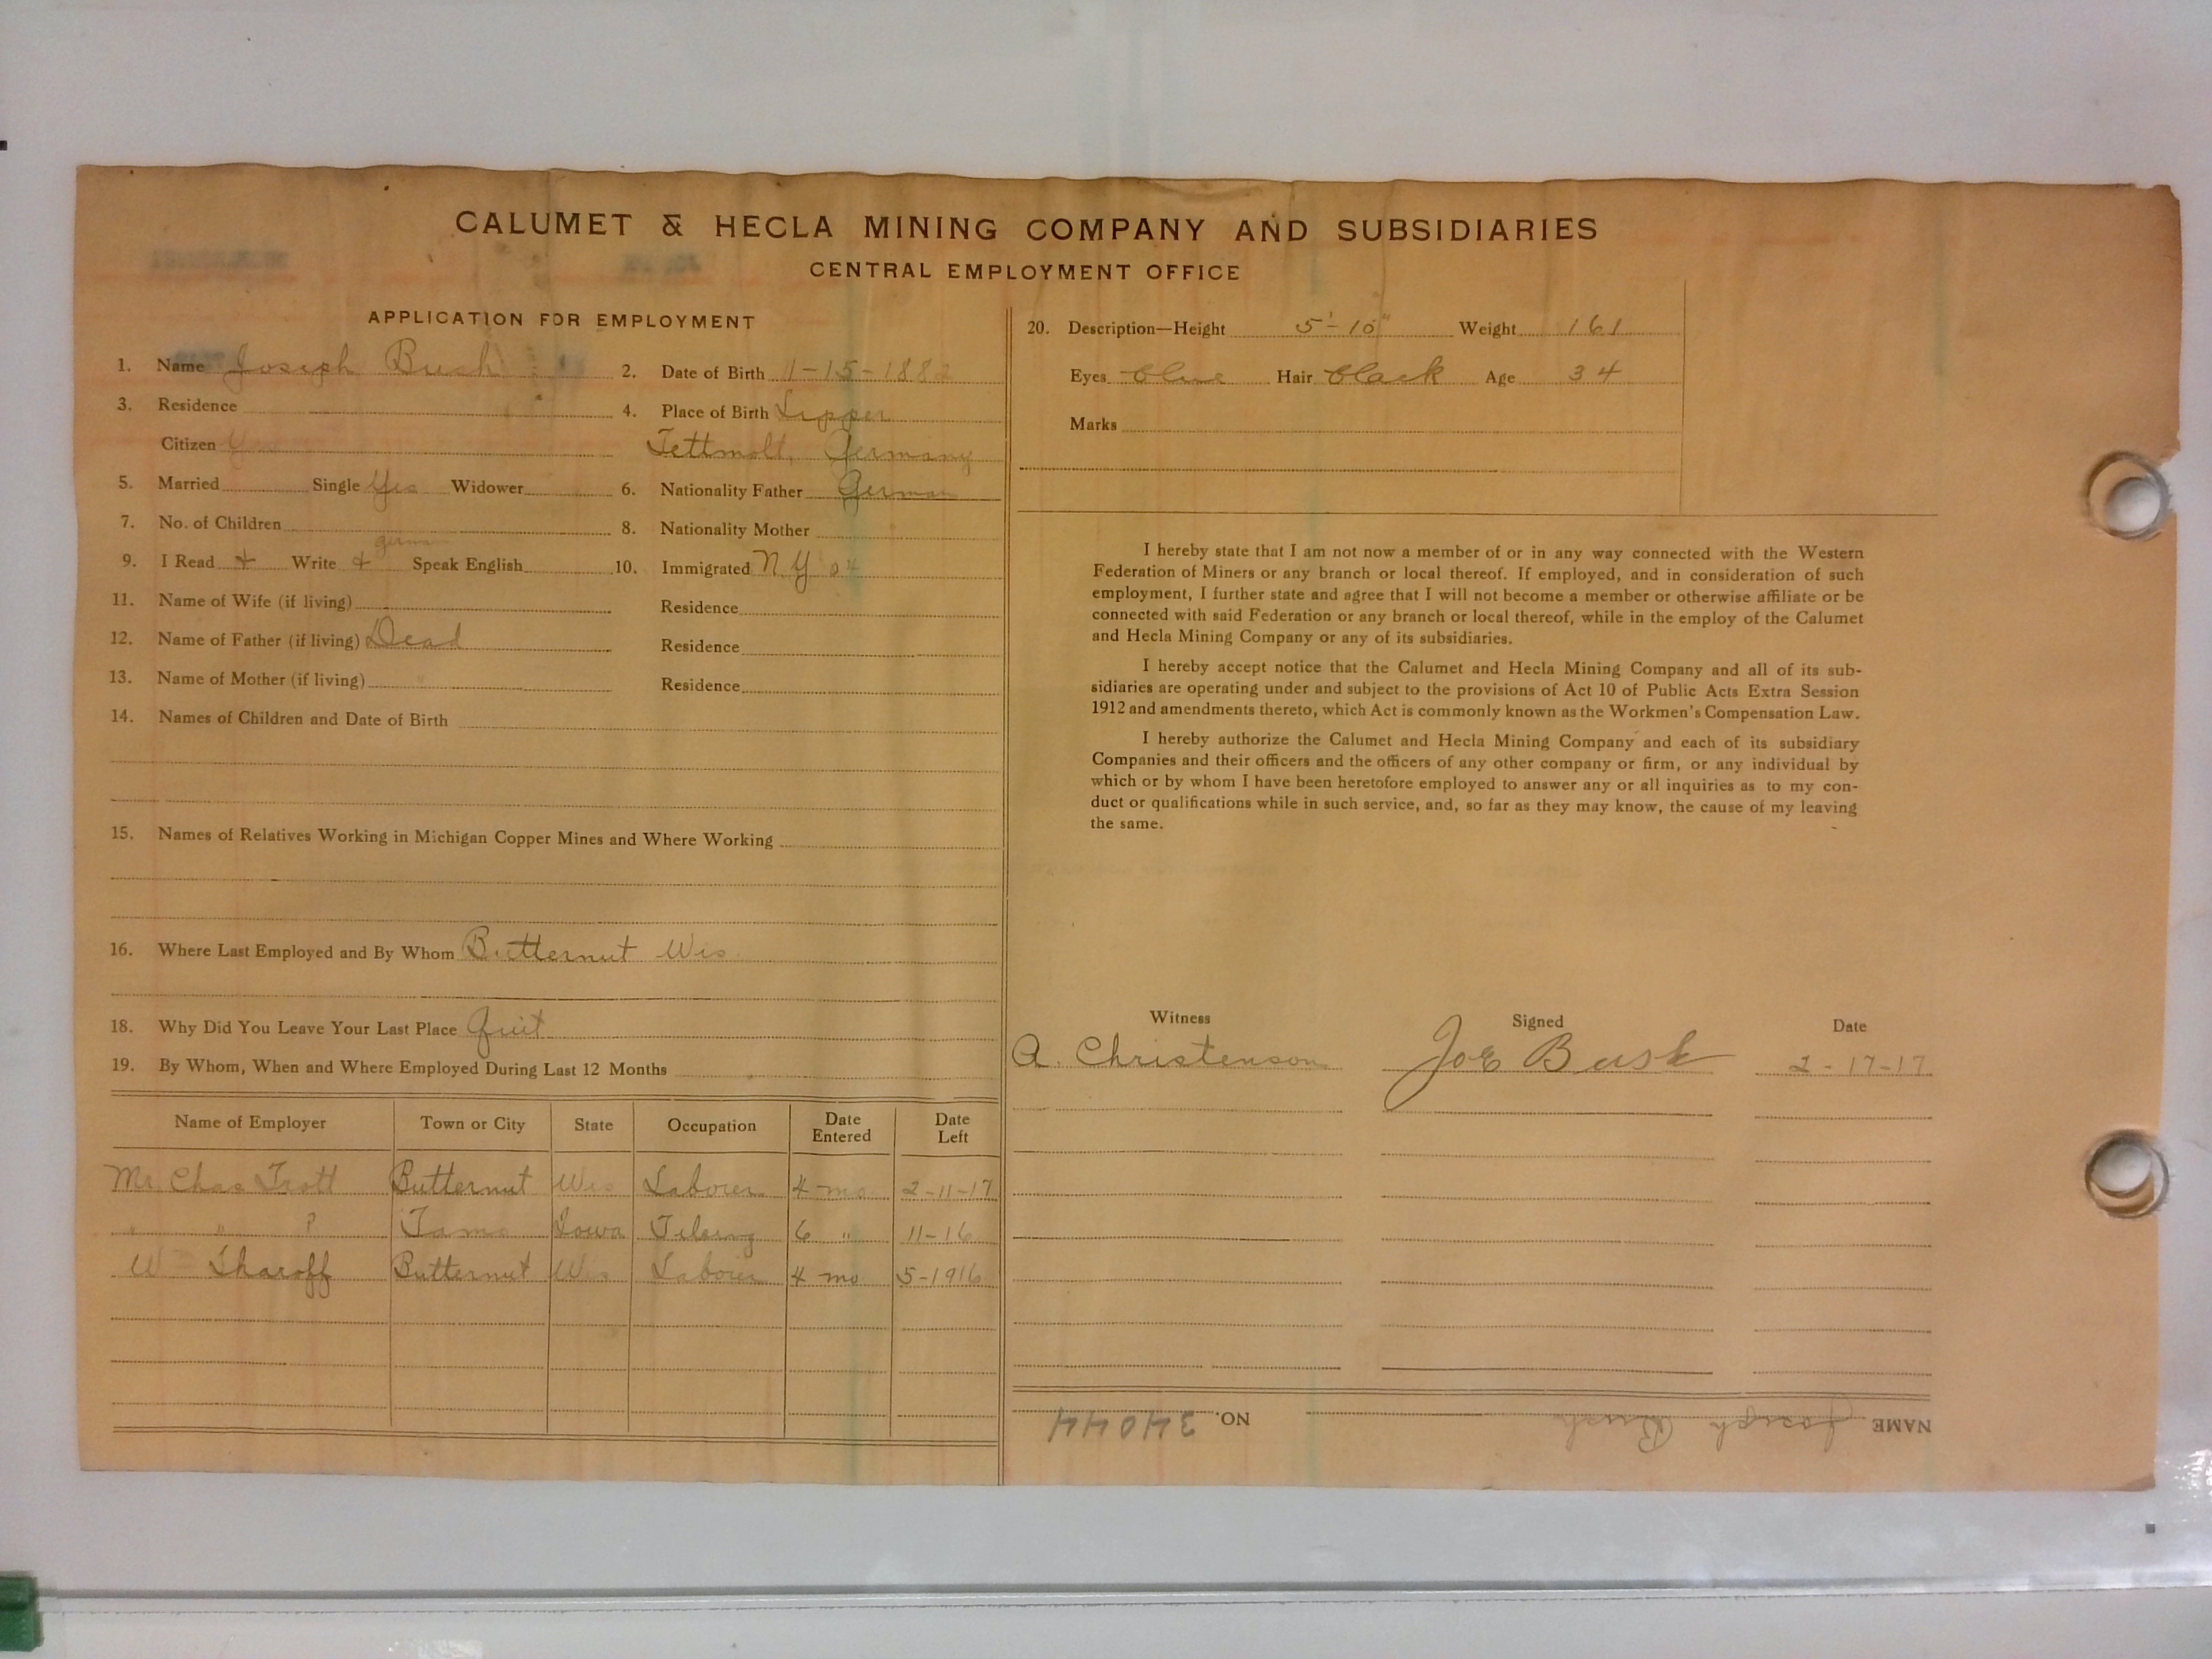 CALUMET & HECLA MINING COMPANY AND SUBSIDIARIES
CENTRAL EMPLOYMENT OFFICE
APPLICATION FOR EMPLOYMENT
1. Name Joseph Bush 2. Date of Birth 11-15-1882
3. Residence 4. Place of Birth Lipper
Citizen Tettmolt, Germany
5. Married Single Yes Widower 6. Nationality Father German
7. No. of Children 8. Nationality Mother
german
9. I Read + Write + Speak English 10. Immigrated N Y 04
11. Name of Wife (if living) Residence
12. Name of Father (if living) Dead Residence
13. Name of Mother (if living) " Residence
14. Names of Children and Date of Birth
15. Names of Relatives Working in Michigan Copper Mines and Where Working
16. Where Last Employed and By Whom Butternut Wis.
18. Why Did You Leave Your Last Place Quit
19. By Whom, When and Where Employed During Last 12 Months
Name of Employer Town or City State Occupation Date Entered Date Left
Mr Chas Trott Butternut Wis Laborer 4 mo 2-11-17
" " ? Tama Iowa 6 " 11-16
W Sharoff Butternut Wis Laborer 4 mo 5-1916
20. Description—Height 5'-10" Weight 161
Eyes blue Hair black Age 34
Marks
I hereby state that I am not now a member of or in any way connected with the Western
Federation of Miners or any branch or local thereof. If employed, and in consideration of such
employment, I further state and agree that I will not become a member or otherwise affiliate or be
connected with said Federation or any branch or local thereof, while in the employ of the Calumet
and Hecla Mining Company or any of its subsidiaries.
I hereby accept notice that the Calumet and Hecla Mining Company and all of its sub-
sidiaries are operating under and subject to the provisions of Act 10 of Public Acts Extra Session
1912 and amendments thereto, which Act is commonly known as the Workmen's Compensation Law.
I hereby authorize the Calumet and Hecla Mining Company and each of its subsidiary
Companies and their officers and the officers of any other company or firm, or any individual by
which or by whom I have been heretofore employed to answer any or all inquiries as to my con-
duct or qualifications while in such service, and, so far as they may know, the cause of my leaving
the same.
Witness Signed Date
A. Christenson Joe Bush 2-17-17
NAME Joseph Bush NO. 34044